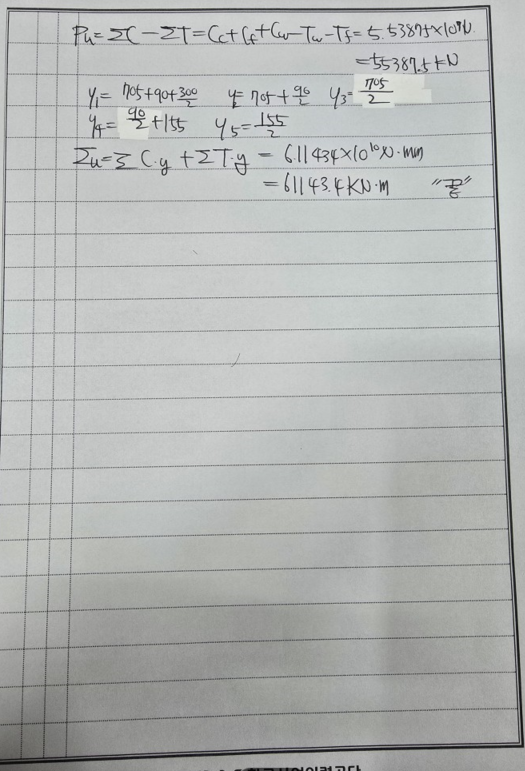 Pu=ΣC-ΣT=Cc+Cf+Cw-Tw-Tf=5.53875×10⁷N
=55387.5kN
y₁= 705+90+300/2 y₂= 705+90/2 y₃= 705/2
y₄= 90/2+155 y₅= 155/2
Σu=ΣC·y+ΣT·y = 6.11434×10¹⁰N·mm
=61143.4KN·m "끝"